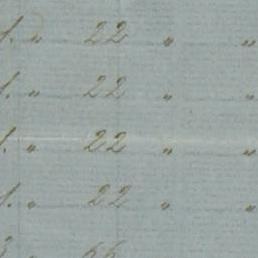 1. " 22 " "
1. " 22 " "
1. " 22 " "
1. " 22 " "
3 " 66